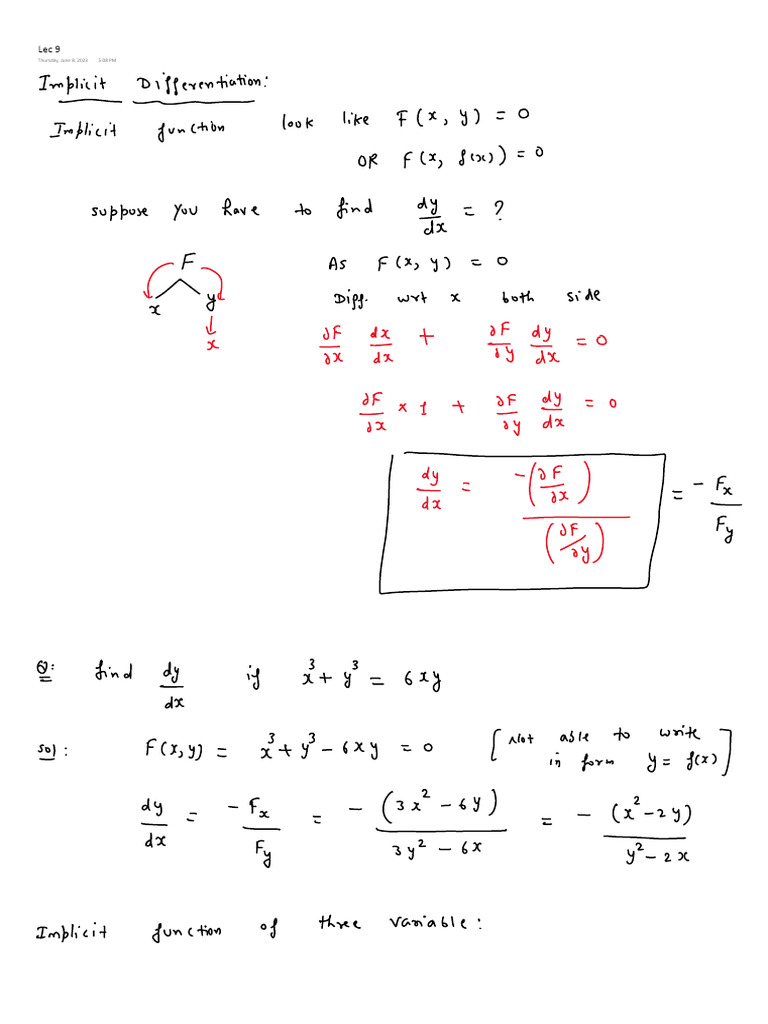 Lec 9
Thursday, June 8, 2023 5:08 PM
Implicit Differentiation:
Implicit function look like F(x, y) = 0
OR F(x, f(x)) = 0
suppose you have to find dy/dx = ?
F
x y
x
As F(x, y) = 0
Diff. wrt x both side
∂F/∂x dx/dx + ∂F/∂y dy/dx = 0
∂F/∂x × 1 + ∂F/∂y dy/dx = 0
dy/dx = -(∂F/∂x)/(∂F/∂y) = - Fx/Fy
Q: find dy/dx if x³ + y³ = 6xy
Sol: F(x,y) = x³ + y³ - 6xy = 0 [Not able to write in form y = f(x)]
dy/dx = -Fx/Fy = - (3x² - 6y)/(3y² - 6x) = - (x² - 2y)/(y² - 2x)
Implicit function of three variable: